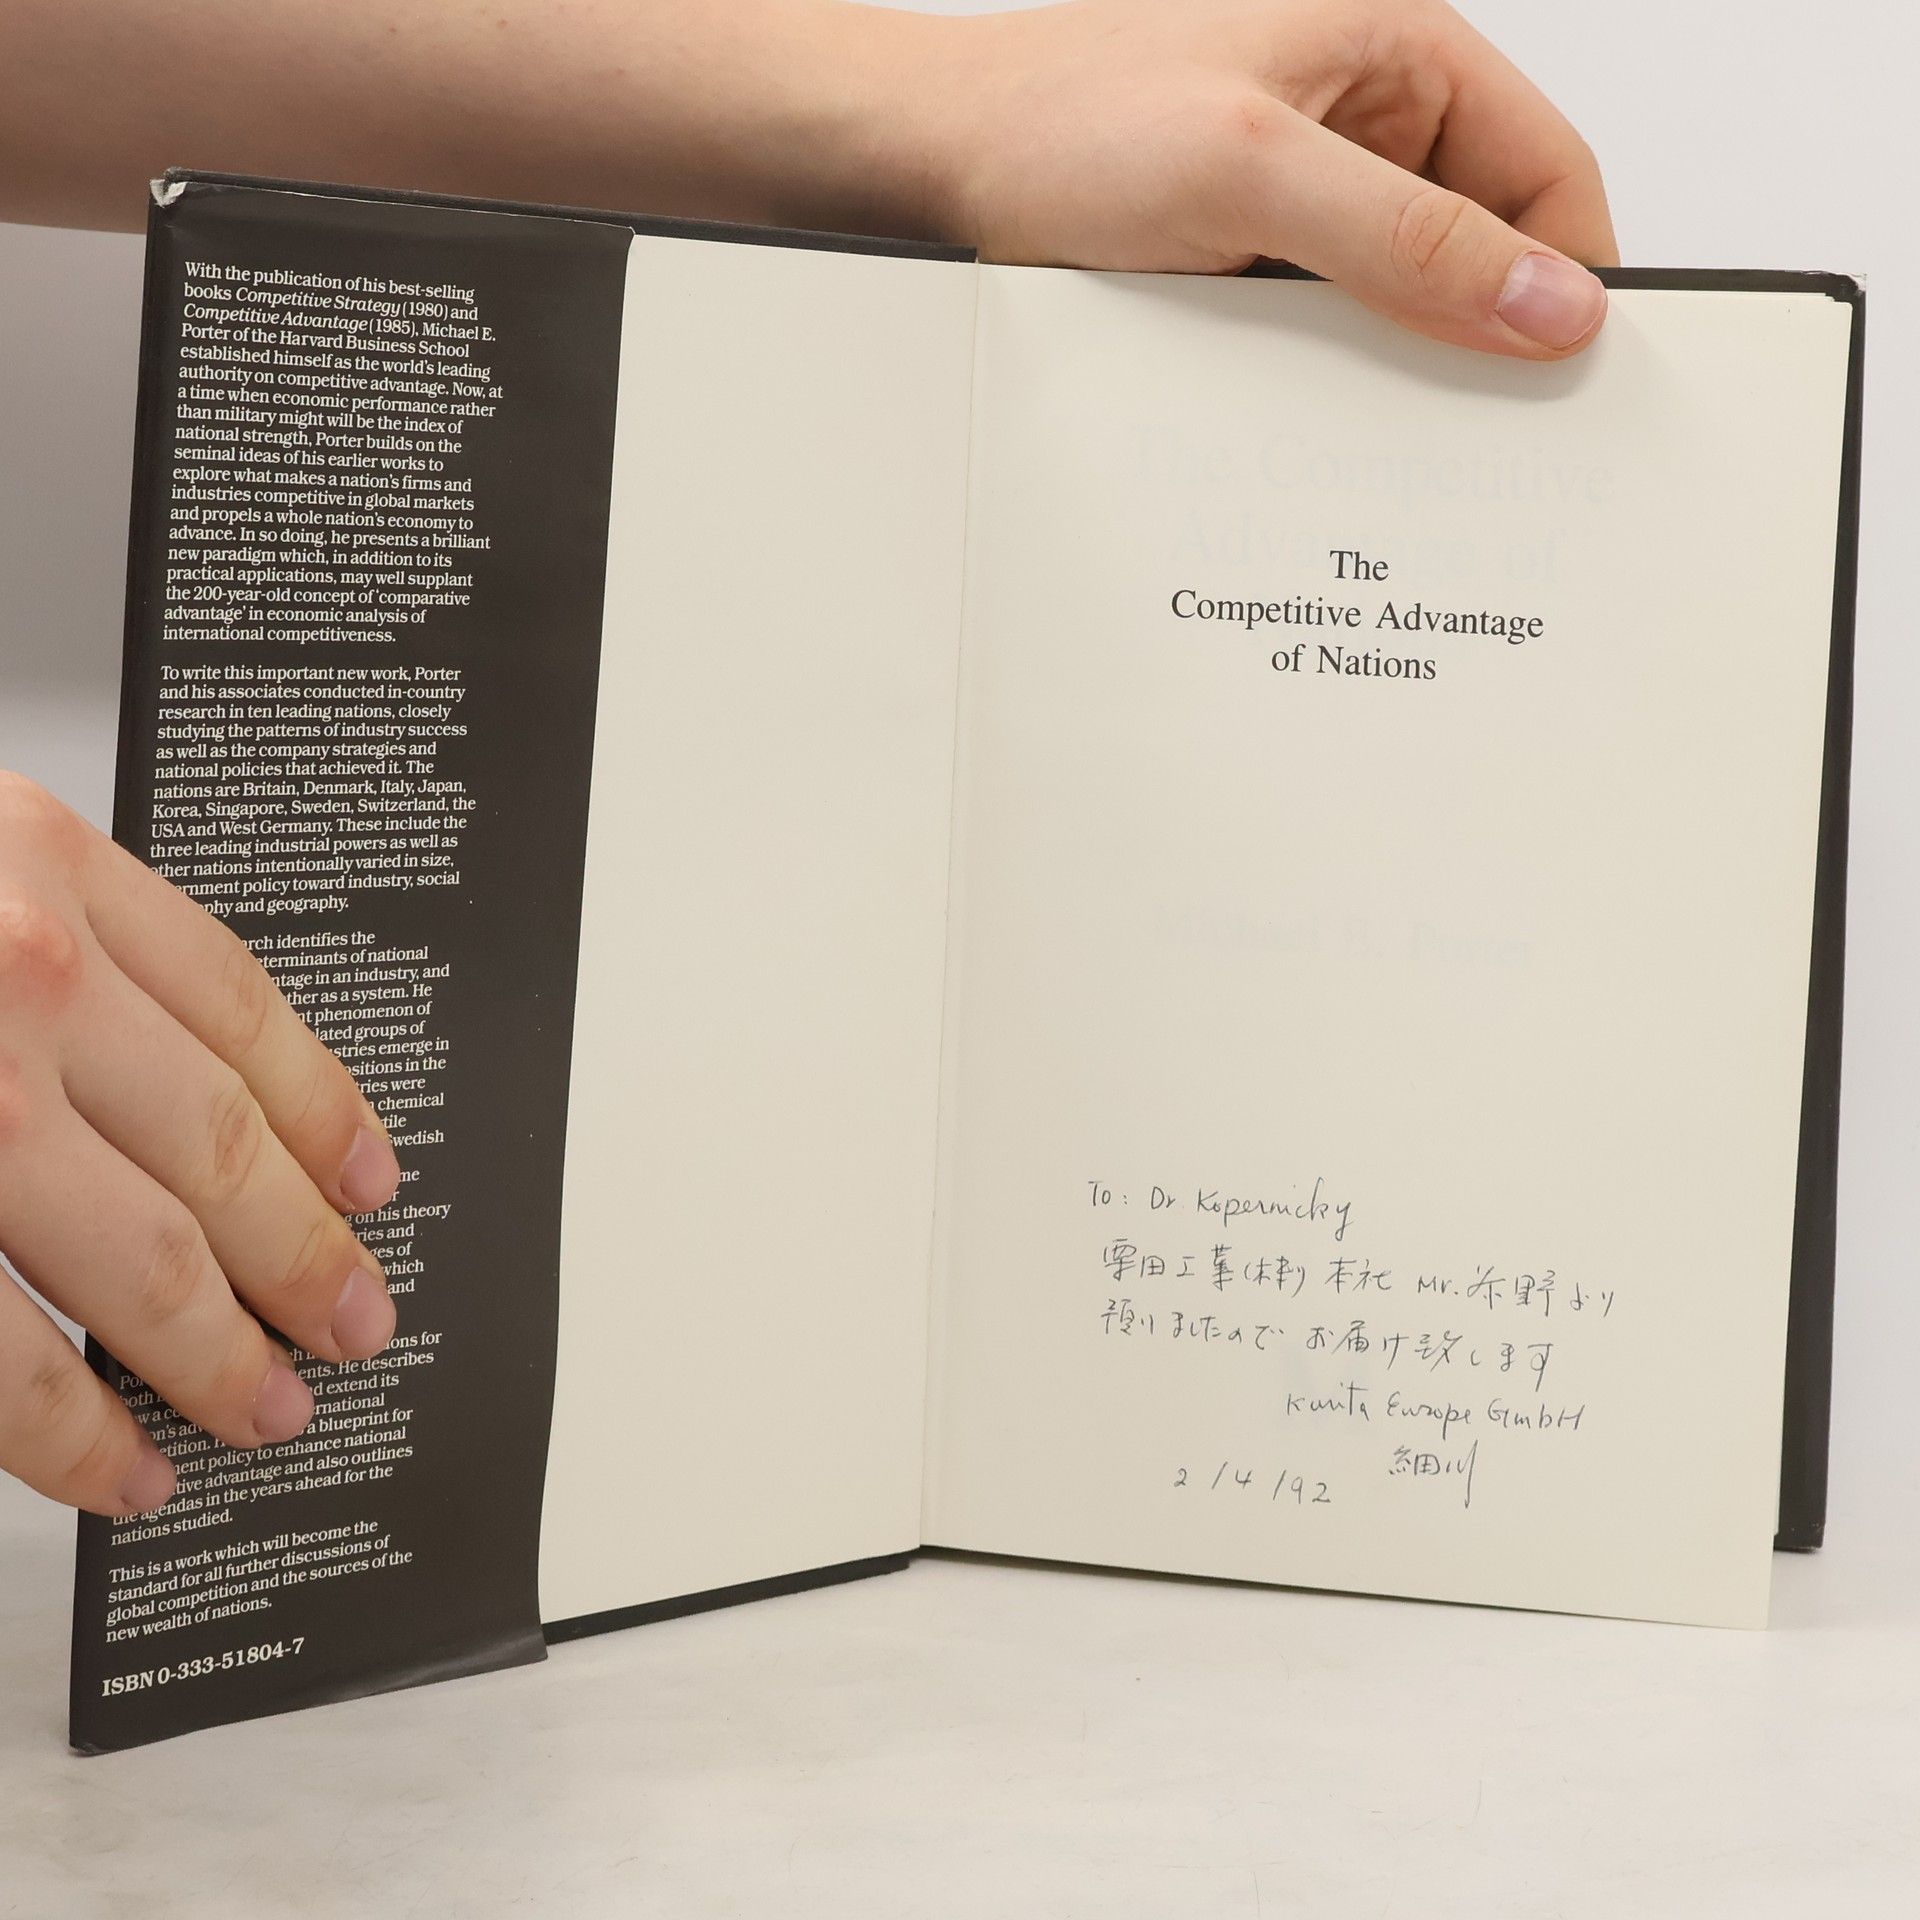 With the publication of his best-selling
books Competitive Strategy (1980) and
Competitive Advantage (1985), Michael E.
Porter of the Harvard Business School
established himself as the world's leading
authority on competitive advantage. Now, at
a time when economic performance rather
than military might will be the index of
national strength, Porter builds on the
seminal ideas of his earlier works to
explore what makes a nation's firms and
industries competitive in global markets
and propels a whole nation's economy to
advance. In so doing, he presents a brilliant
new paradigm which, in addition to its
practical applications, may well supplant
the 200-year-old concept of 'comparative
advantage' in economic analysis of
international competitiveness.
To write this important new work, Porter
and his associates conducted in-country
research in ten leading nations, closely
studying the patterns of industry success
as well as the company strategies and
national policies that achieved it. The
nations are Britain, Denmark, Italy, Japan,
Korea, Singapore, Sweden, Switzerland, the
USA and West Germany. These include the
three leading industrial powers as well as
other nations intentionally varied in size,
policy toward industry, social
and geography.
identifies the
of national
in an industry, and
as a system. He
phenomenon of
groups of
emerge in
in the
were
chemical
Swedish
on his theory
and
of
which
and
for
He describes
extend its
a blueprint for
policy to enhance national
advantage and also outlines
the agendas in the years ahead for the
nations studied.
This is a work which will become the
standard for all further discussions of
global competition and the sources of the
new wealth of nations.
ISBN 0-333-51804-7
The
Competitive Advantage
of Nations
To: Dr Kopernicky
栗田工業(株) 本社 Mr. 野より
預りましたので お届け致します
Kurita Europe GmbH
細川
2/4/92